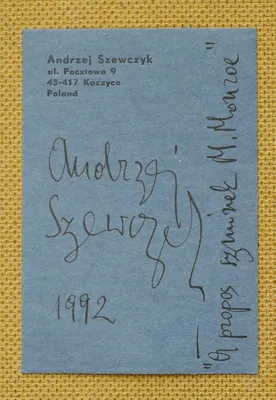 Andrzej Szewczyk
ul. Pocztowa 9
43-417 Kaczyce
Poland
Andrzej
Szewczyk
1992
"A propos szminek M. Monroe"